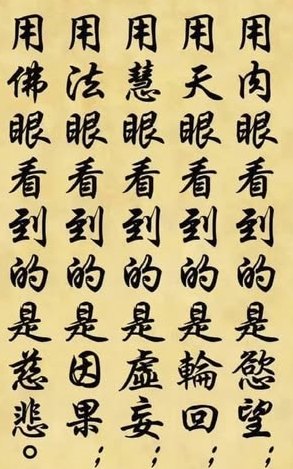 用肉眼看到的是慾望；
用天眼看到的是輪回；
用慧眼看到的是虛妄；
用法眼看到的是因果；
用佛眼看到的是慈悲。